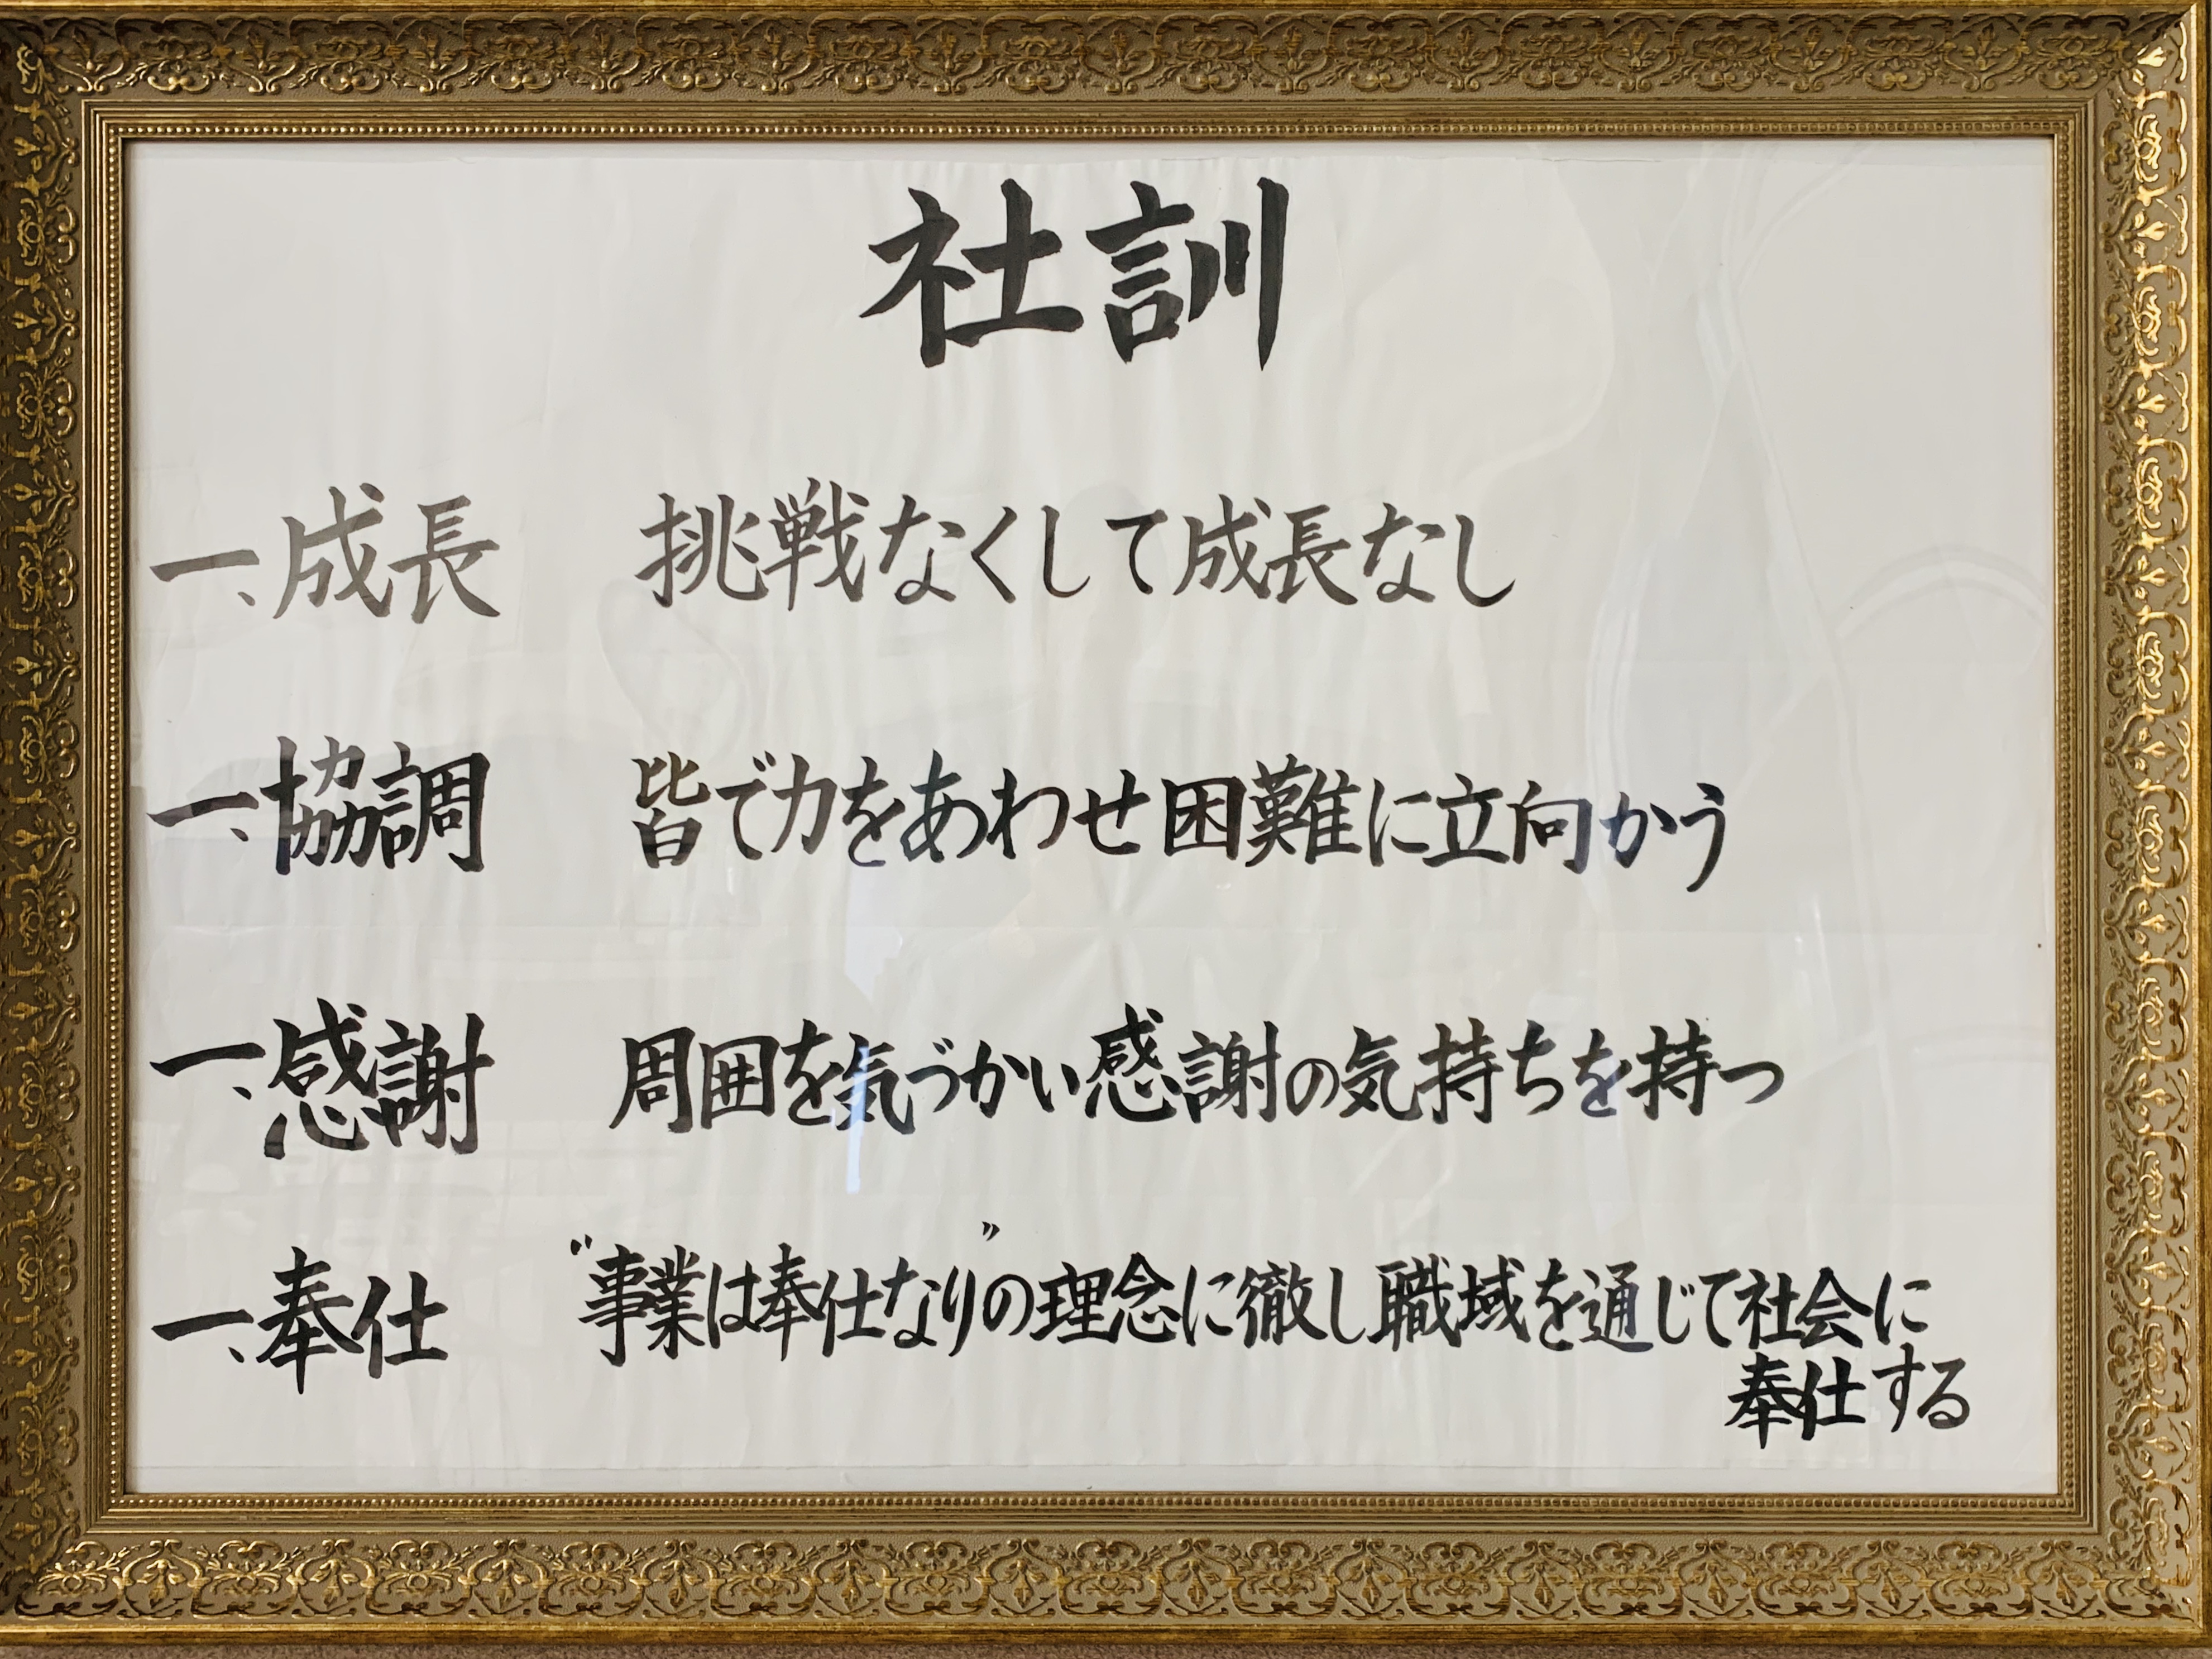 社訓
一、成長　挑戦なくして成長なし
一、協調　皆で力をあわせ困難に立向かう
一、感謝　周囲を気づかい感謝の気持ちを持つ
一、奉仕　〝事業は奉仕なり〞の理念に徹し職域を通じて社会に
奉仕する